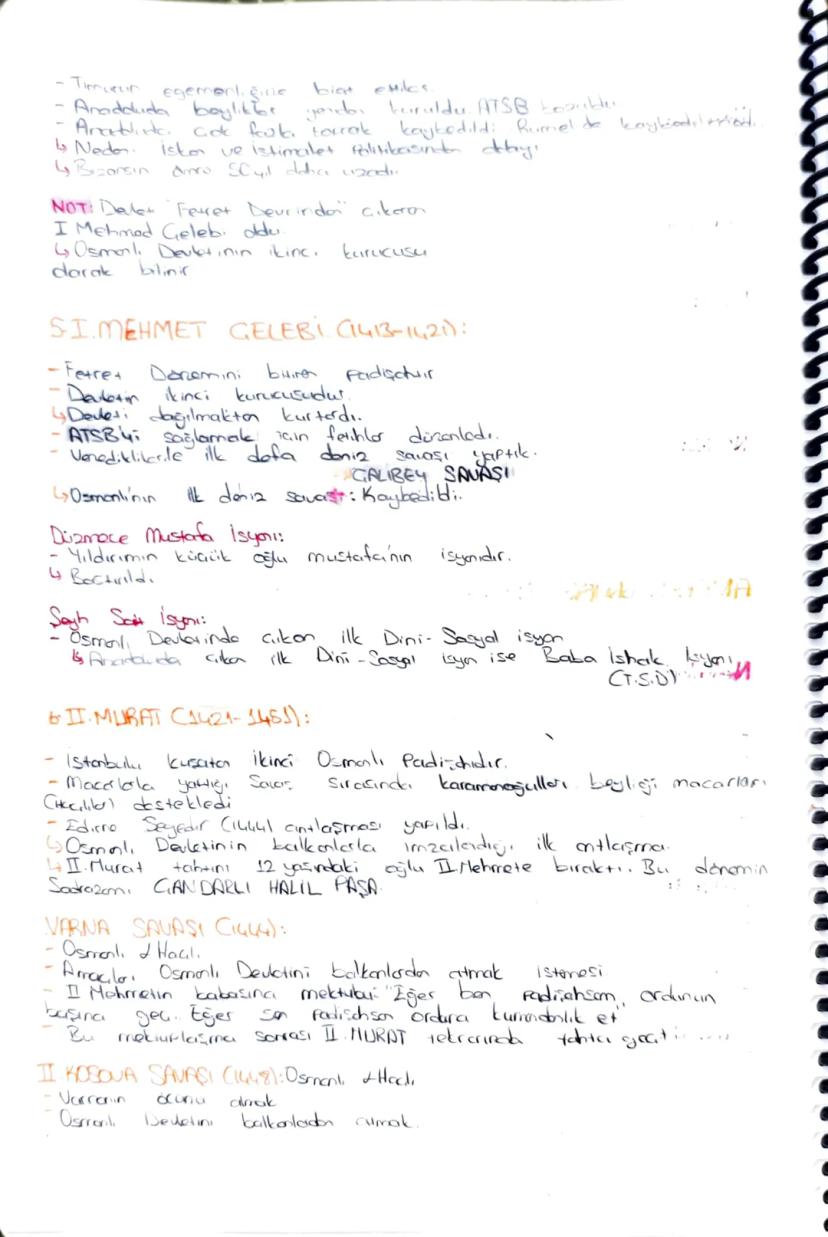 - Timurun egemenliğine biat ettiler.
- Anadoluda beylikler yeniden kuruldu. ATSB bozuldu.
- Anadoluda çok fazla toprak kaybedildi Rumelide kaybedilmedi.
↳ Neden: iskan ve istimalet politikasından dolayı
↳ Bizansın ömrü 50 yıl daha uzadı.
NOT: Devleti "Fetret Devrinden" çıkaran
I Mehmed Çelebi oldu.
↳ Osmanlı Devletinin ikinci kurucusu
olarak bilinir
5-I.MEHMET ÇELEBİ (1413-1421):
- Fetret Dönemini bitiren padişahtır
- Devletin ikinci kurucusudur.
↳ Devleti dağılmaktan kurtardı.
- ATSB'yi sağlamak için fetihler düzenledi.
- Venediklilerle ilk defa deniz savaşı yaptık.
GALİBEY SAVAŞI
↳ Osmanlı'nın ilk deniz savaşı: Kaybedildi.
Düzmece Mustafa İsyanı:
- Yıldırımın küçük oğlu mustafa'nın isyanıdır.
↳ Bastırıldı.
Şeyh Sait İsyanı:
- Osmanlı Devletinde çıkan ilk Dini-Sosyal isyan
↳ Anadoluda çıkan ilk Dini-Sosyal isyan ise Baba İshak İsyanı
(T.S.D)
6 II.MURAT (1421-1451):
- İstanbulu kuşatan ikinci Osmanlı Padişahıdır.
- Macarlarla yaptığı Savaş sırasında karamanoğulları beyliği macarları
(Haçlılar) destekledi
- Edirne Segedin (1444) antlaşması yapıldı.
↳ Osmanlı Devletinin balkanlarla imzaladığı ilk antlaşma.
↳ II.Murat tahtını 12 yaşındaki oğlu II.Mehmete bıraktı. Bu dönemin
Sadrazamı ÇANDARLI HALİL PAŞA.
VARNA SAVAŞI (1444):
- Osmanlı & Haçlı
- Amaçları Osmanlı Devletini balkanlardan atmak istemesi
- II Mehmetin babasına mektubu: "Eğer ben padişahsam, ordunun
başına geç. Eğer sen padişahsan orduna kumandanlık et"
- Bu mektuplaşma sonrası II.MURAT tekrardan tahta geçti.
II KOSOVA SAVAŞI (1448): Osmanlı & Haçlı
- Varnanın öcünü almak
- Osmanlı Devletini balkanlardan atmak.